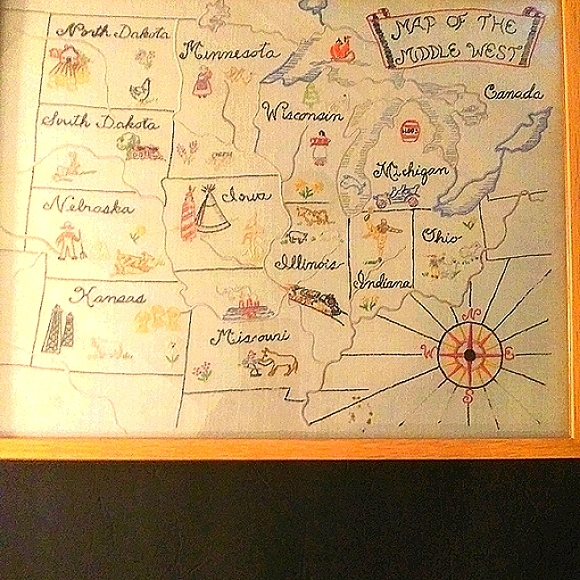 MAP OF THE
MIDDLE WEST
North Dakota
Minnesota
Canada
South Dakota
Wisconsin
Michigan
Nebraska
Iowa
Ohio
Illinois
Indiana
Kansas
Missouri
N
W
E
S